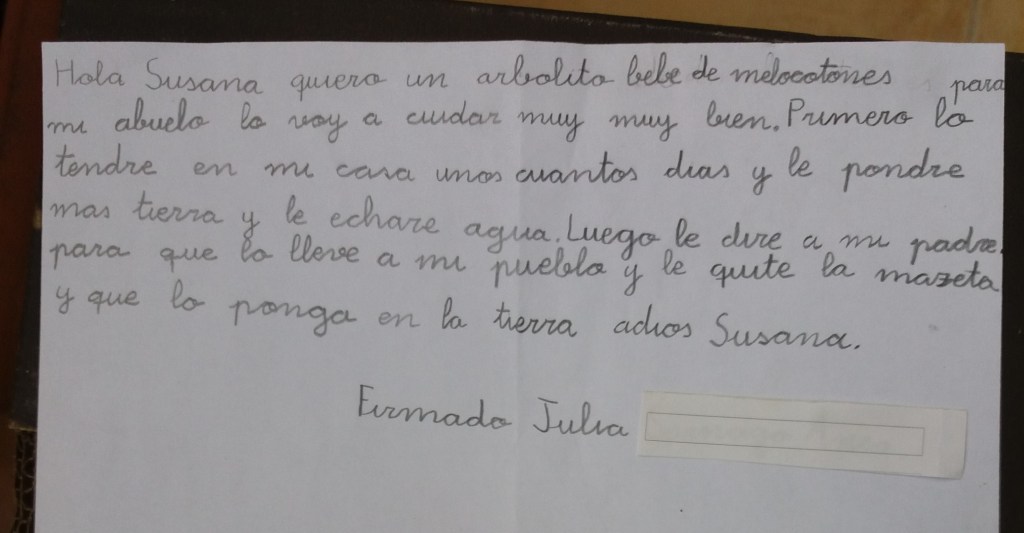 Hola Susana quiero un arbolito bebe de melocotones para
mi abuelo lo voy a cuidar muy muy bien. Primero lo
tendre en mi casa unos cuantos dias y le pondre
mas tierra y le echare agua. Luego le dire a mi padre.
para que lo lleve a mi pueblo y le quite la mazeta
y que lo ponga en la tierra adios Susana.
Firmado Julia